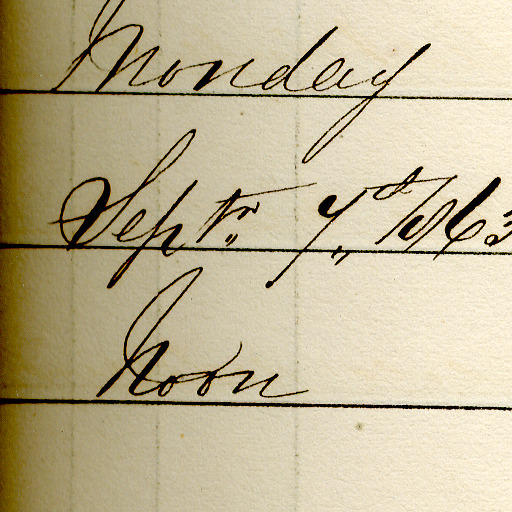 Monday
Septr. 7th/63
Noon